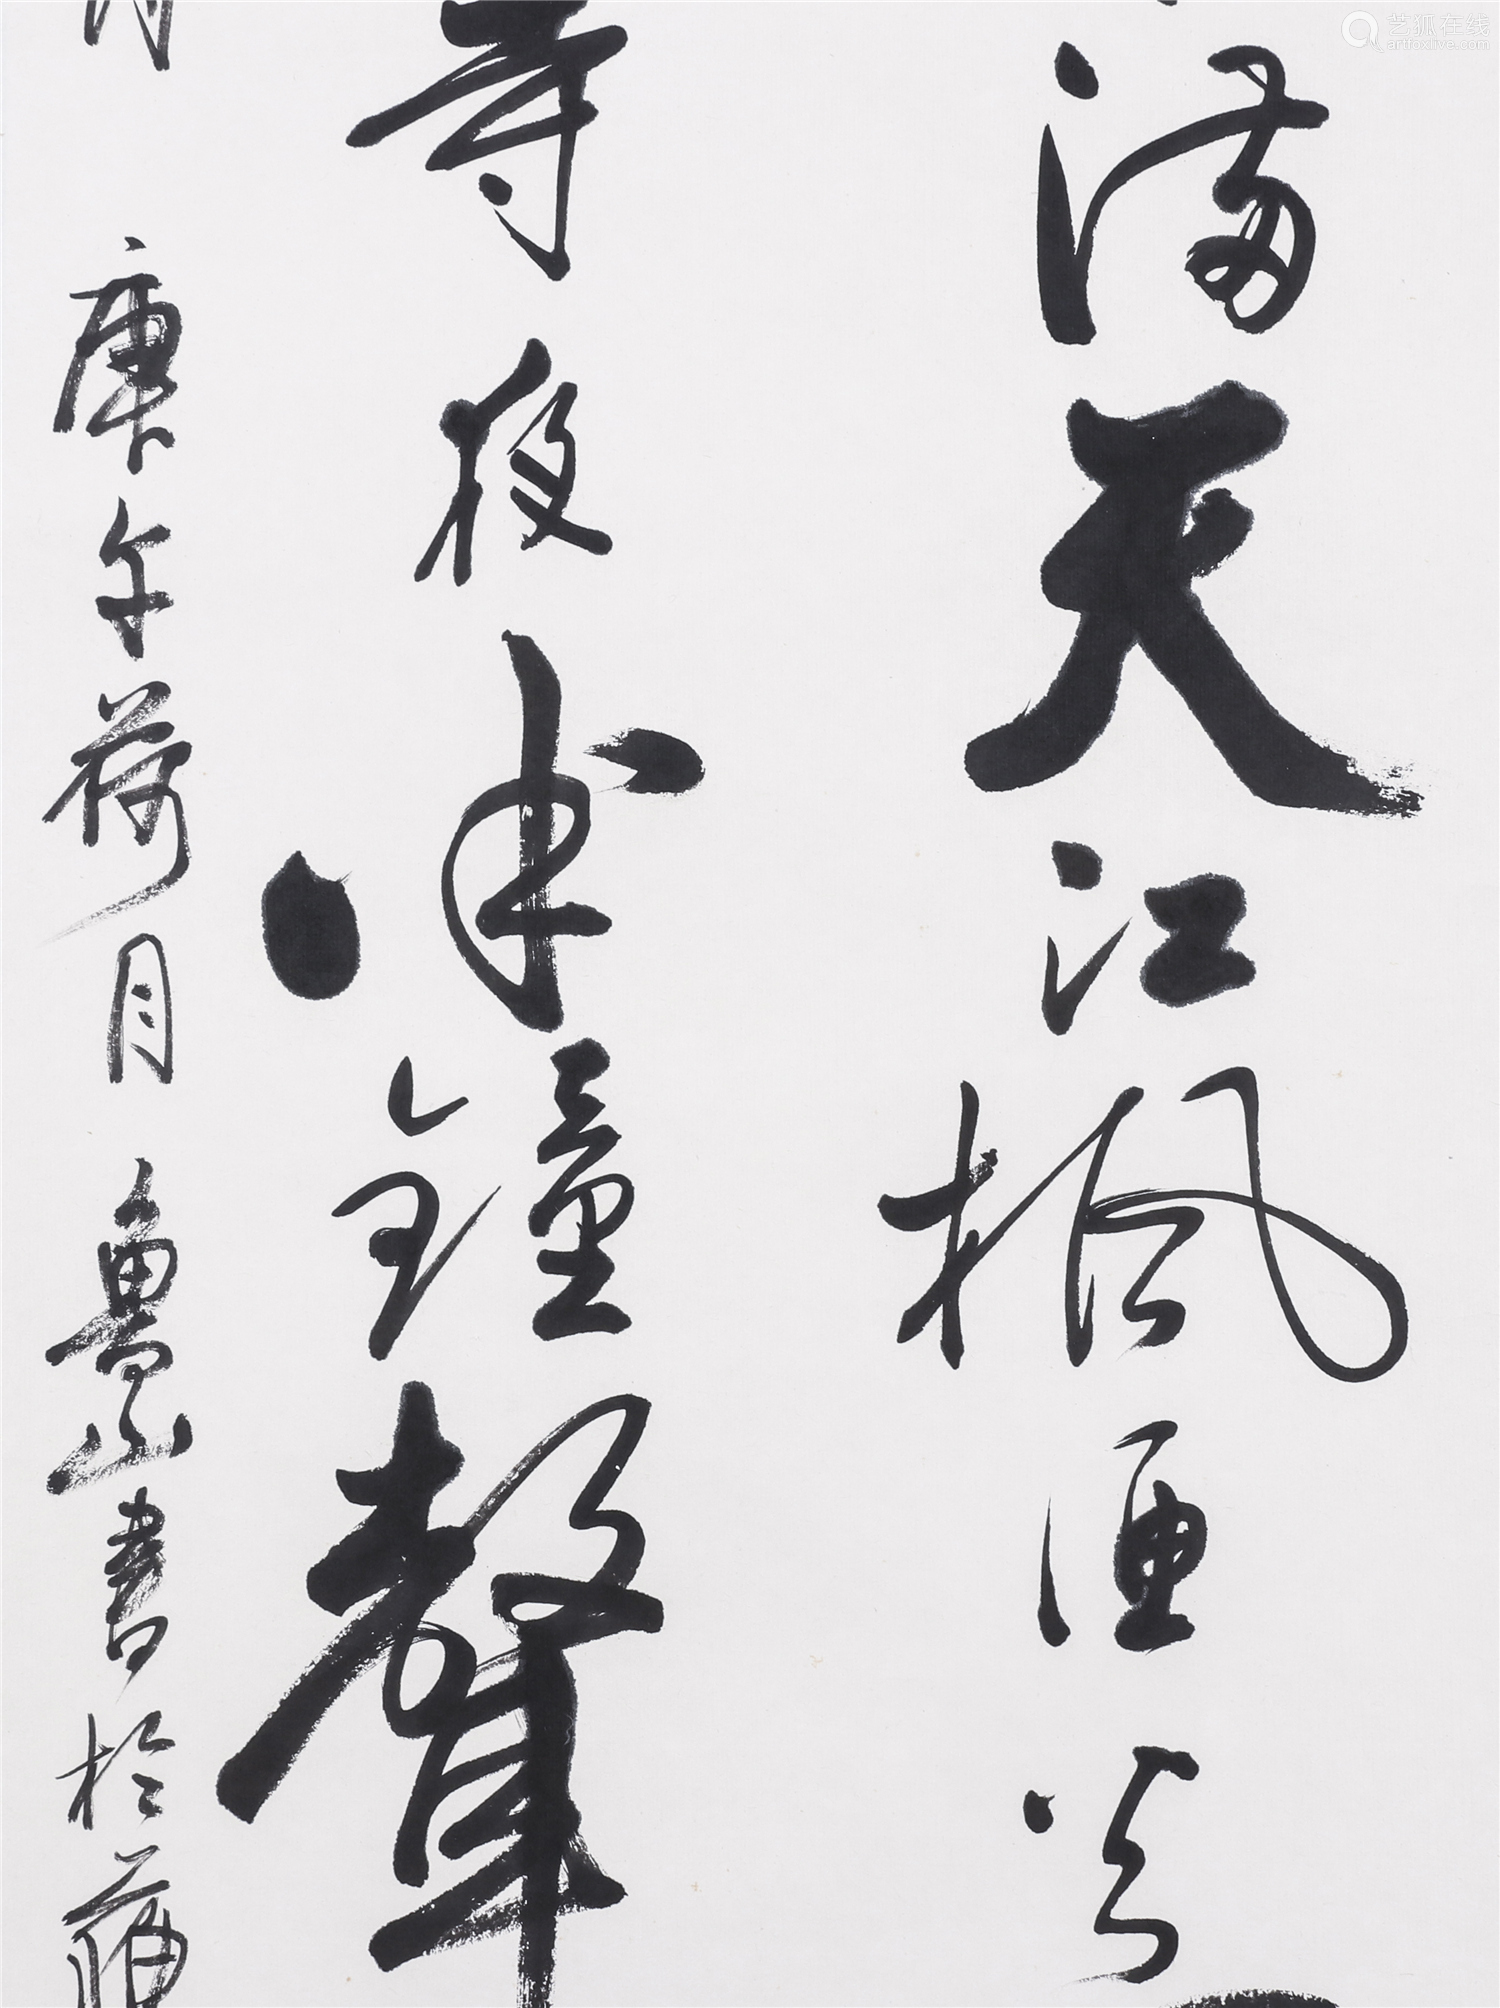 满天江楓漁火
寺夜半鐘聲
庚午荷月 魯山書於蘇
艺狐在线
artfoxlive.com